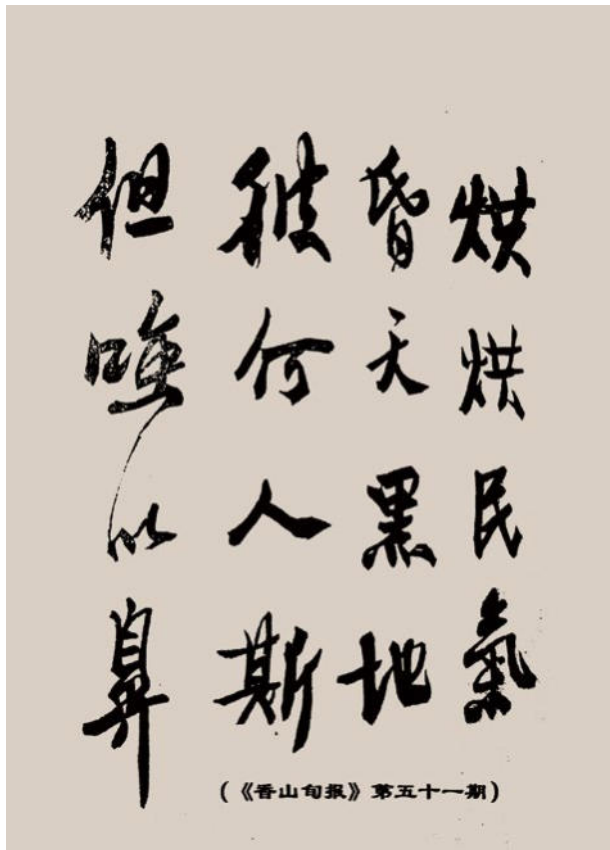 烘烘民氣
昏天黑地
彼何人斯
但嗤以鼻
(《香山旬报》第五十一期)